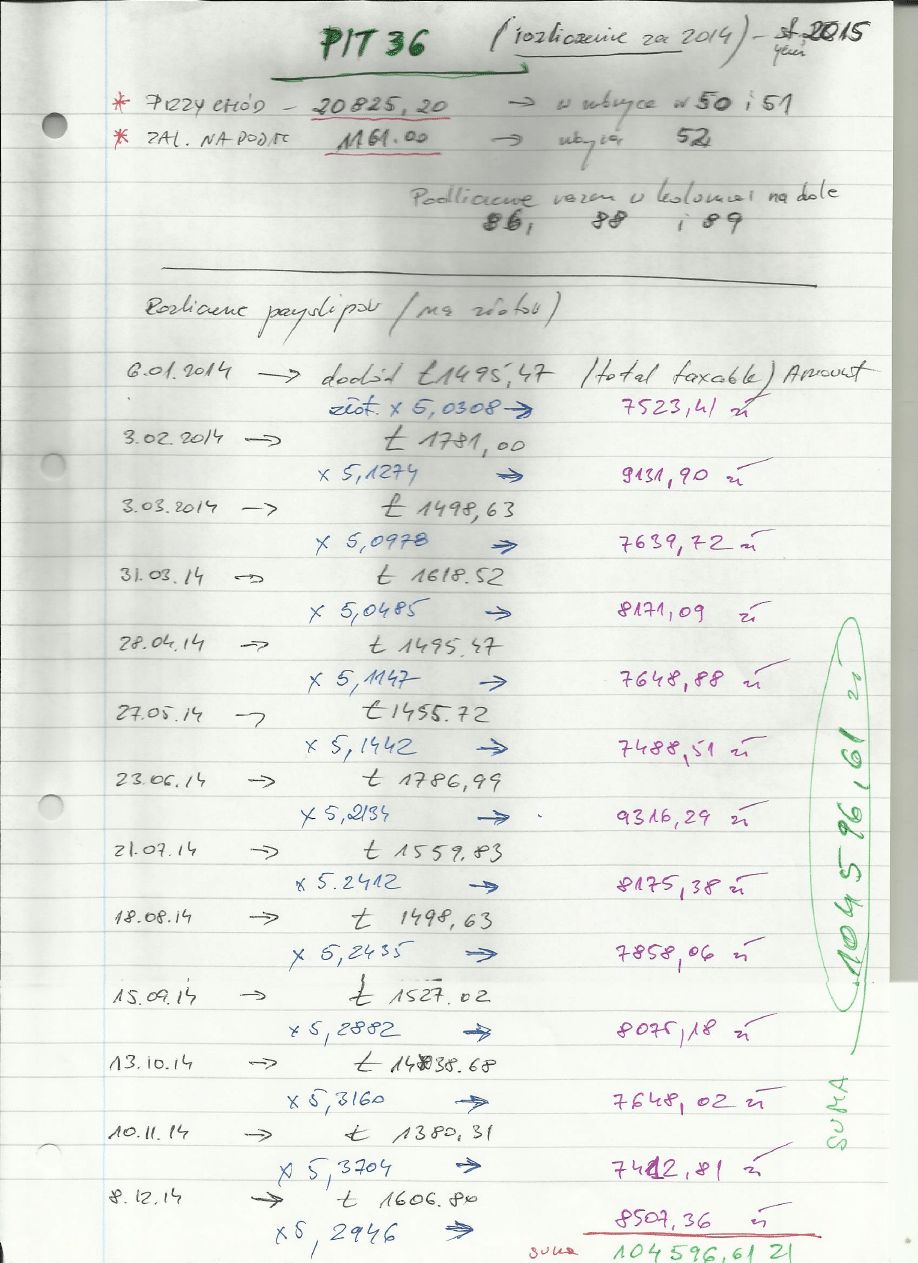 PIT 36 (rozliczenie za 2014) - st. 2015
* PRZYCHÓD - 20825,20 → w rubryce nr 50 i 51
* ZAL. NA PODTC 1161.00 → 52
Podliczenie razem w kolumnie na dole
86, 88 i 89
Rozliczenie payslipów (na złotów)
6.01.2014 → dochód £1495,47 (total taxable) Amount
złot. x 5,0308 → 7523,41 zł
3.02.2014 → £ 1781,00
x 5,1274 → 9131,90 zł
3.03.2014 → £ 1498,63
x 5,0978 → 7639,72 zł
31.03.14 → £ 1618.52
x 5,0485 → 8171,09 zł
28.04.14 → £ 1495.47
x 5,1147 → 7648,88 zł
27.05.14 → £1455.72
x 5,1442 → 7488,51 zł
23.06.14 → £ 1786,99
x 5,2134 → 9316,29 zł
21.07.14 → £ 1559.83
x 5.2412 → 8175,38 zł
18.08.14 → £ 1498,63
x 5,2435 → 7858,06 zł
15.09.14 → £ 1527.02
x 5,2882 → 8075,18 zł
13.10.14 → £ 1438.68
x 5,3160 → 7648,02 zł
10.11.14 → £ 1380,31
x 5,3704 → 7412,81 zł
8.12.14 → £ 1606.80
x 5,2946 → 8507,36 zł
suma 104596,61 zł
SUMA 104596,61 zł